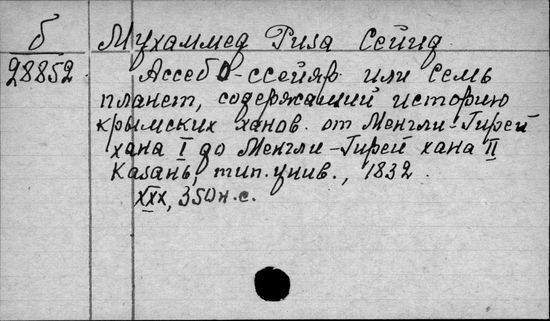 б
28852
Мухаммед Риза Сейид
Ассеб О-ссейяр или семь
планет, содержащий историю
крымских ханов от Менгли-Гирей
хана I до Менгли-Гирей хана II
Казань, тип. унив., 1832
XXX, 350 н. с.